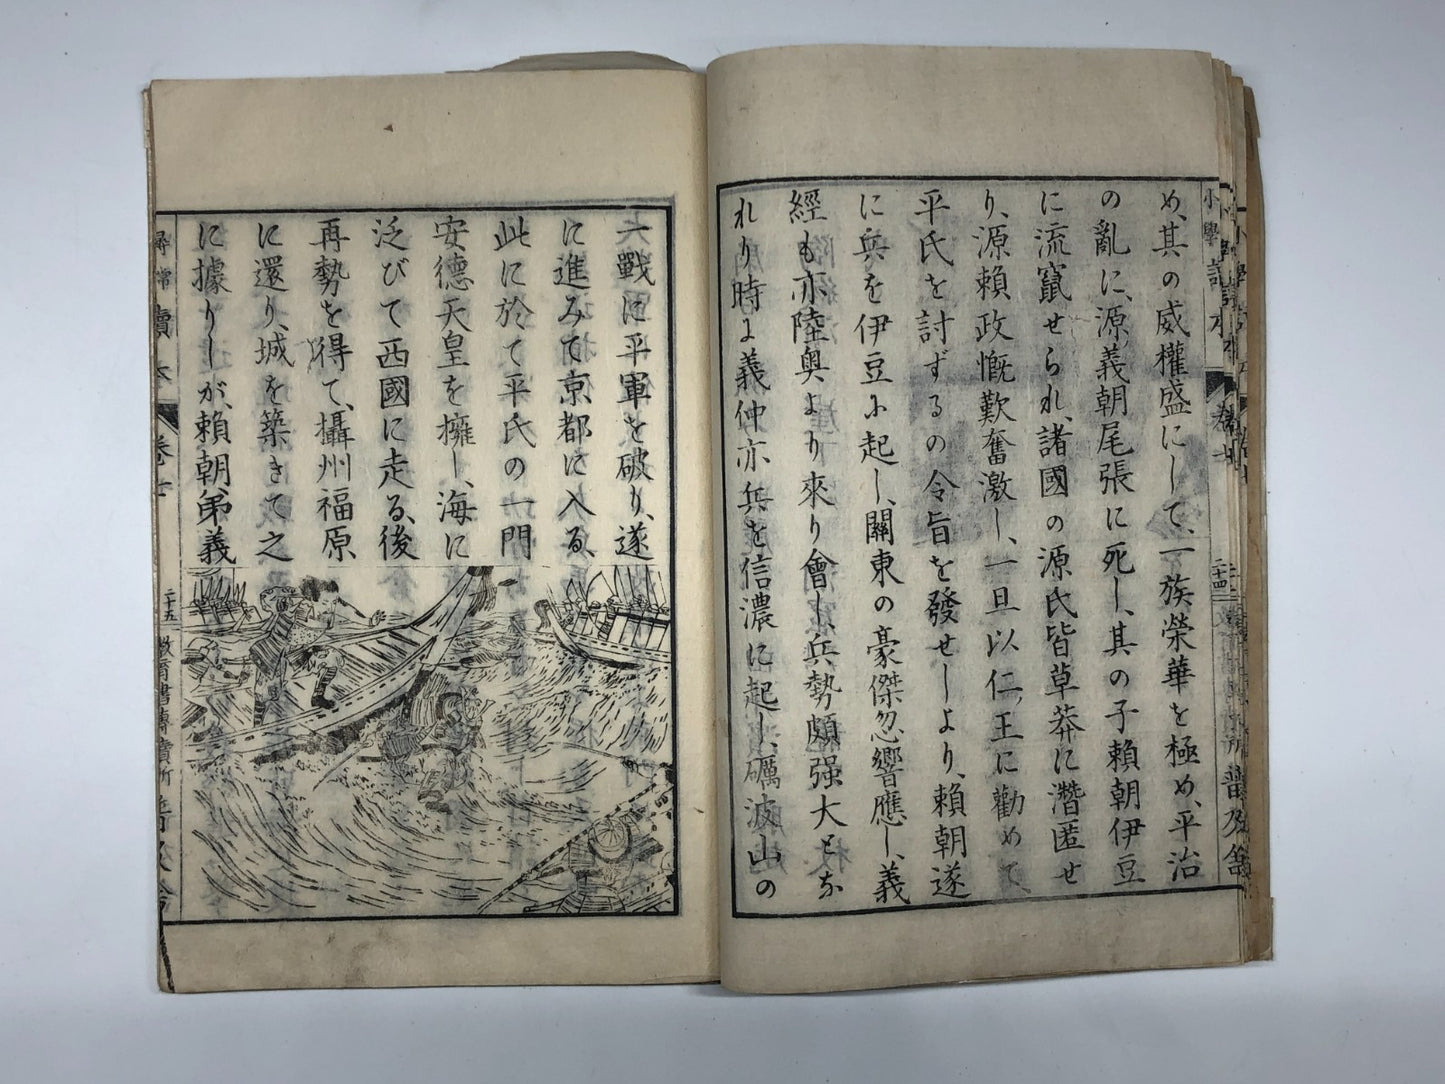 め、其の威權盛にして、一族榮華を極め、平治
の亂に、源義朝尾張に死し、其の子賴朝伊豆
に流竄せられ、諸國の源氏皆草莽に潛匿せ
り、源賴政慨歎奮激し、一旦以仁王に勸めて、
平氏を討ずるの令旨を發せしより、賴朝遂
に兵を伊豆に起し、關東の豪傑忽響應し、義
經も亦陸奥より來り會し、兵勢頗强大となり
れり時に義仲亦兵を信濃に起し、礪波山の
一戰に平軍を破り、遂
に進みて京都に入る、
此に於て平氏の一門
安德天皇を擁し、海に
泛びて西國に走る、後
再勢を得て、攝州福原
に還り、城を築きて之
に據りしが、賴朝、弟義
尋常
讀本
卷七
二十五
小學
讀本
卷七
二十四
普及舍